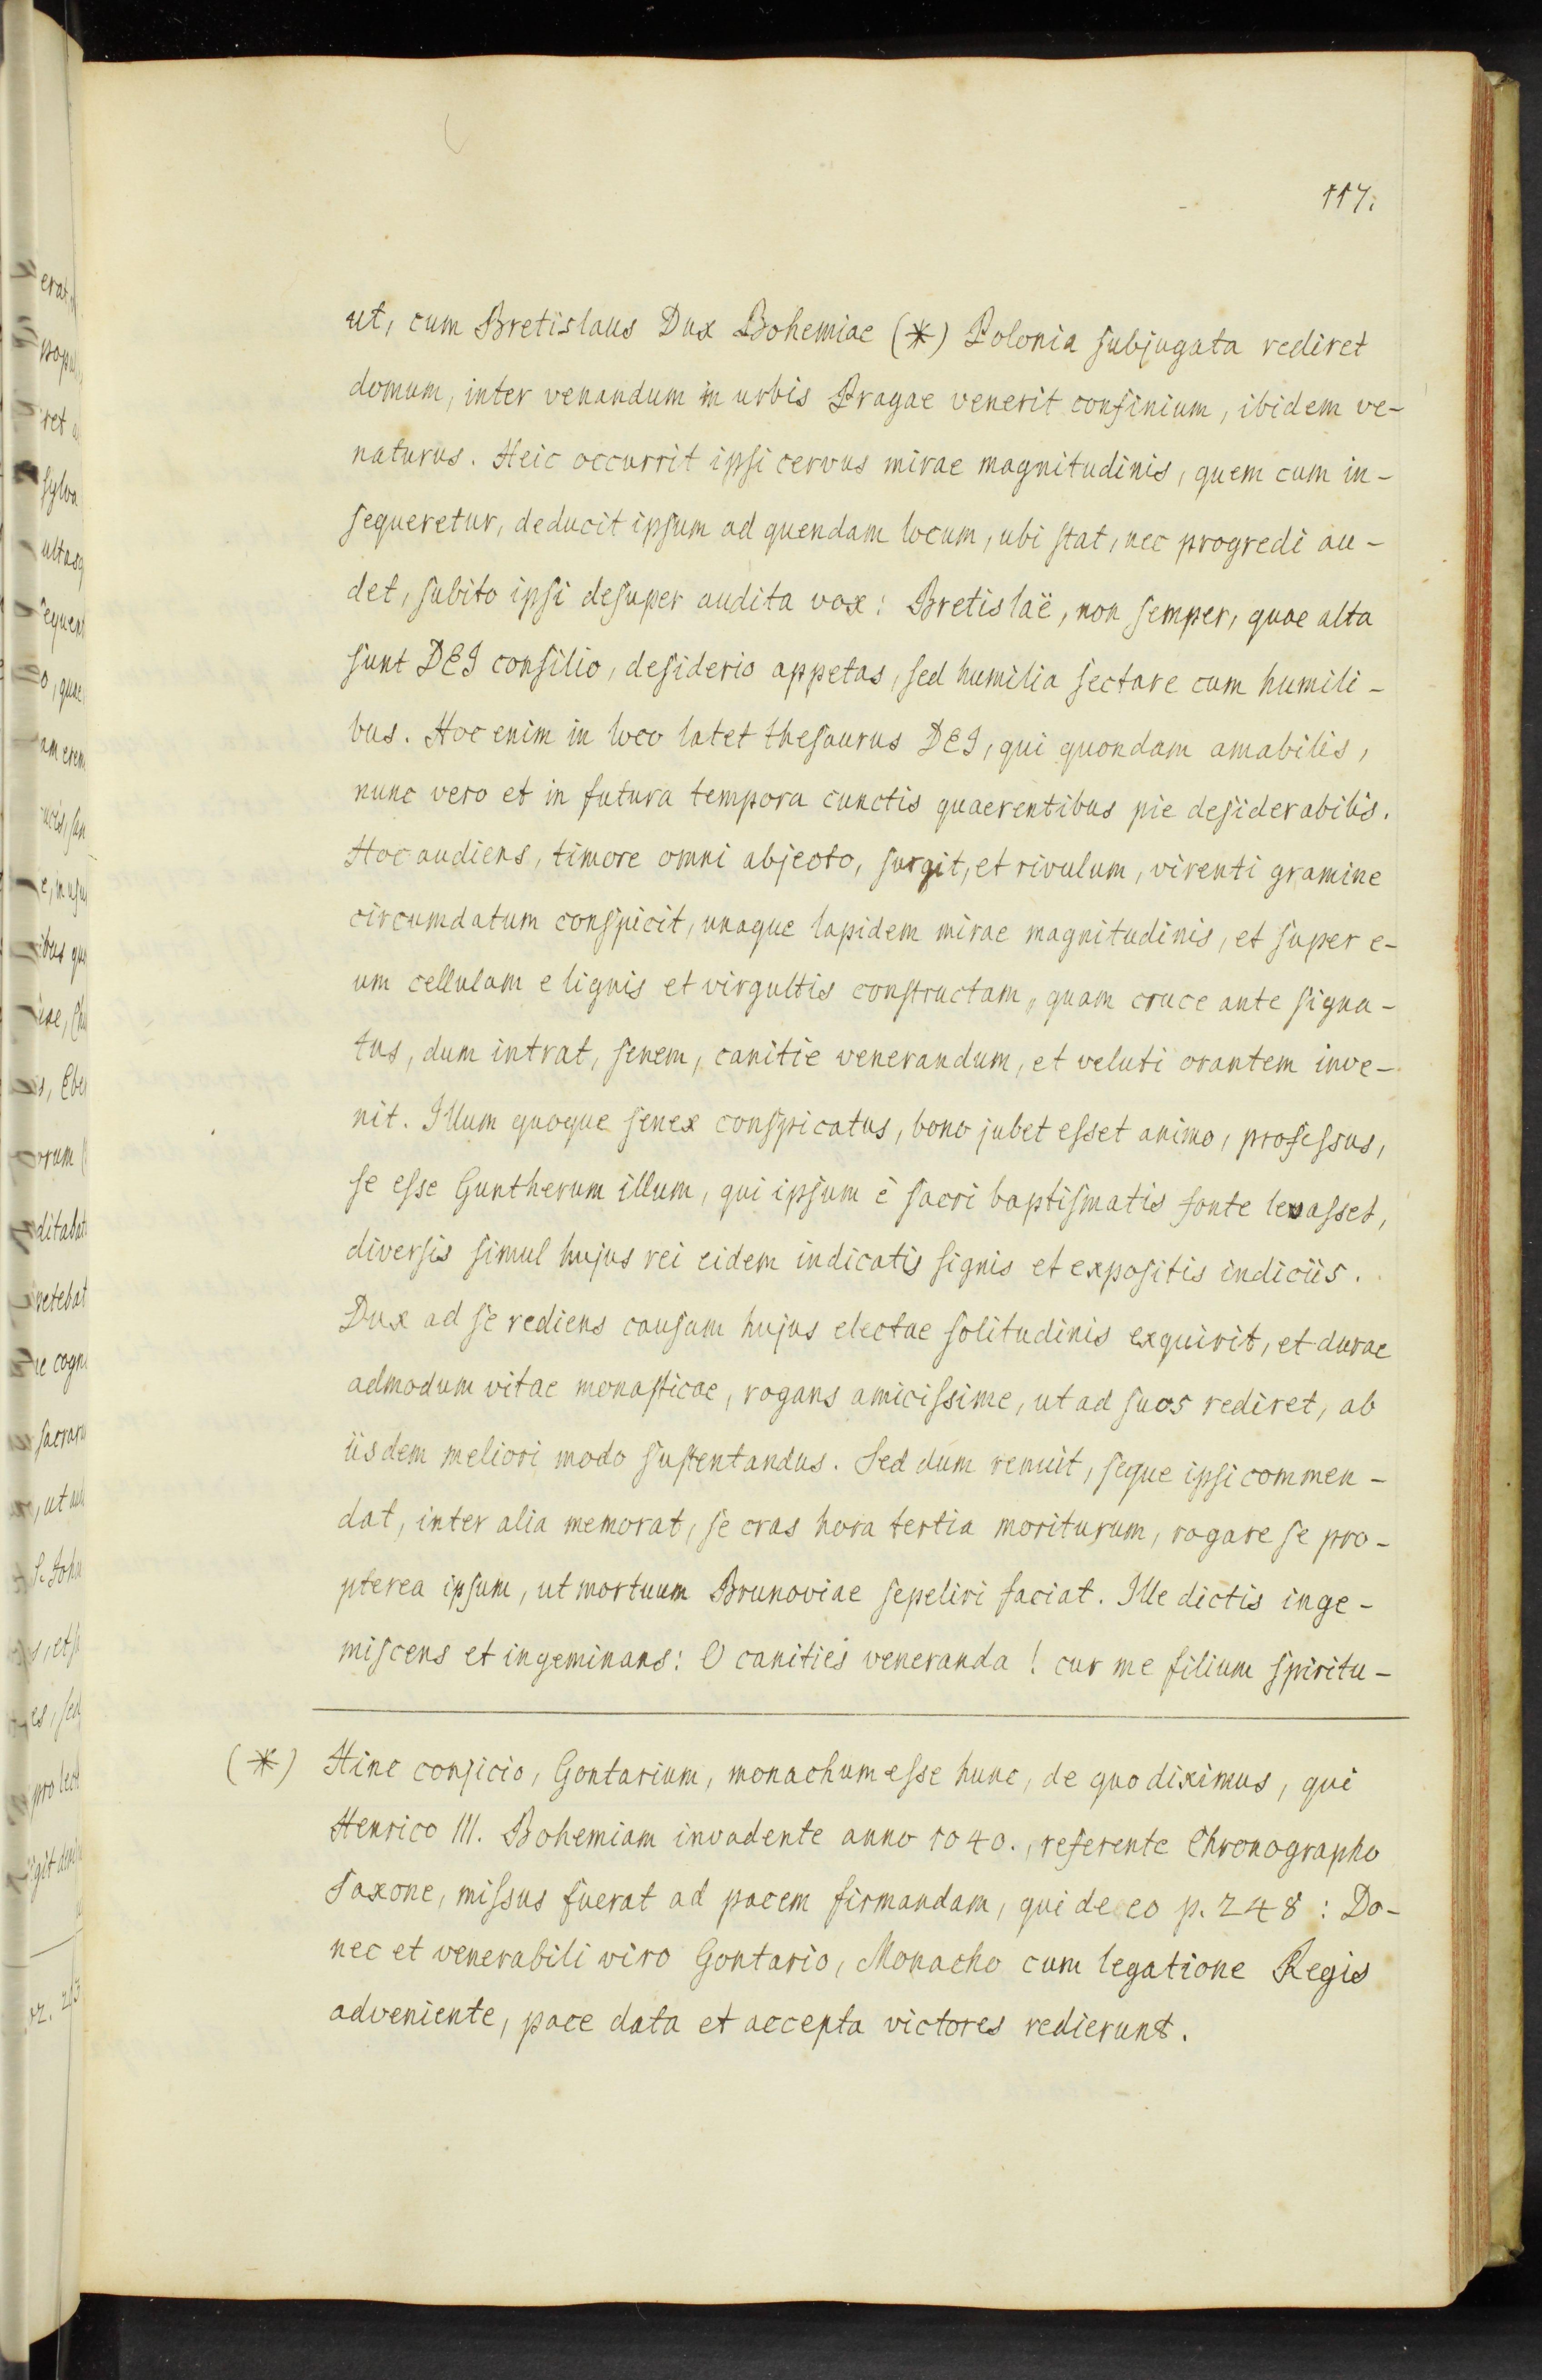 117.
ut, cum Bretislaus Dux Bohemiae (*) Polonia subjugata rediret
domum, inter venandum in urbis Pragae venerit confinium, ibidem ve-
naturus. Heic occurrit ipsi cervus mirae magnitudinis, quem cum in-
sequeretur, deducit ipsum ad quendam locum, ubi stat, nec progredi au-
det, subito ipsi desuper audita vox: Bretislaë, non semper, quae alta
sunt DEI consilio, desiderio appetas, sed humilia sectare cum humili-
bus. Hoc enim in loco latet thesaurus DEI, qui quondam amabilis,
nunc vero et in futura tempora cunctis quaerentibus pie desiderabilis.
Hoc audiens, timore omni abjecto, surgit, et rivulum, virenti gramine
circumdatum conspicit, unaque lapidem mirae magnitudinis, et super e-
um cellulam e lignis et virgultis constructam, quam cruce ante signa-
tus, dum intrat, senem, canitie venerandum, et veluti orantem inve-
nit. Illum quoque senex conspicatus, bono jubet esset animo, professus,
se esse Guntherum illum, qui ipsum è sacri baptismatis fonte levasset,
diversis simul hujus rei eidem indicatis signis et expositis indiciis.
Dux ad se rediens causam hujus electae solitudinis exquirit, et durae
admodum vitae monasticae, rogans amicissime, ut ad suos rediret, ab
iisdem meliori modo sustentandus. Sed dum renuit, seque ipsi commen-
dat, inter alia memorat, se cras hora tertia moriturum, rogare se pro-
pterea ipsum, ut mortuum Brunoviae sepeliri faciat. Ille dictis inge-
miscens et ingeminans: O canities veneranda! cur me filium spiritu-
(*) Hinc conjicio, Gontarium, monachum esse hunc, de quo diximus, qui
Henrico III. Bohemiam invadente anno 1040., referente Chronographo
Saxone, missus fuerat ad pacem firmandam, qui de eo p. 248: Do-
nec et venerabili viro Gontario, Monacho cum legatione Regis
adveniente, pace data et accepta victores redierunt.